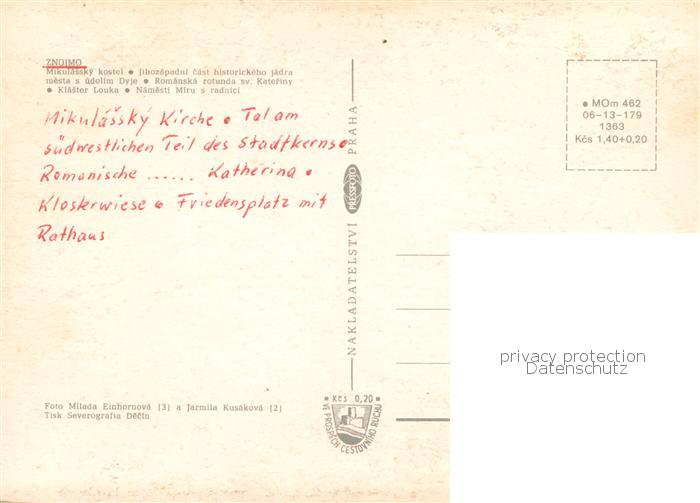 ZNOJMO
Mikulášský kostel ● Jihozápadní část historického jádra
města s údolím Dyje ● Románská rotunda sv. Kateřiny
● Klášter Louka ● Náměstí Míru s radnicí
Mikulášský Kirche • Tal am
südwestlichen Teil des Stadtkerns •
Romanische ...... Katherina •
Klosterwiese • Friedensplatz mit
Rathaus
NAKLADATELSTVÍ PRESSFOTO PRAHA
● MOm 462
06-13-179
1363
Kčs 1,40+0,20
privacy protection
Datenschutz
Foto Milada Einhornová [3] a Jarmila Kusáková [2]
Tisk Severografia Děčín
● Kčs 0,20 ●
VE PROSPĚCH CESTOVNÍHO RUCHU